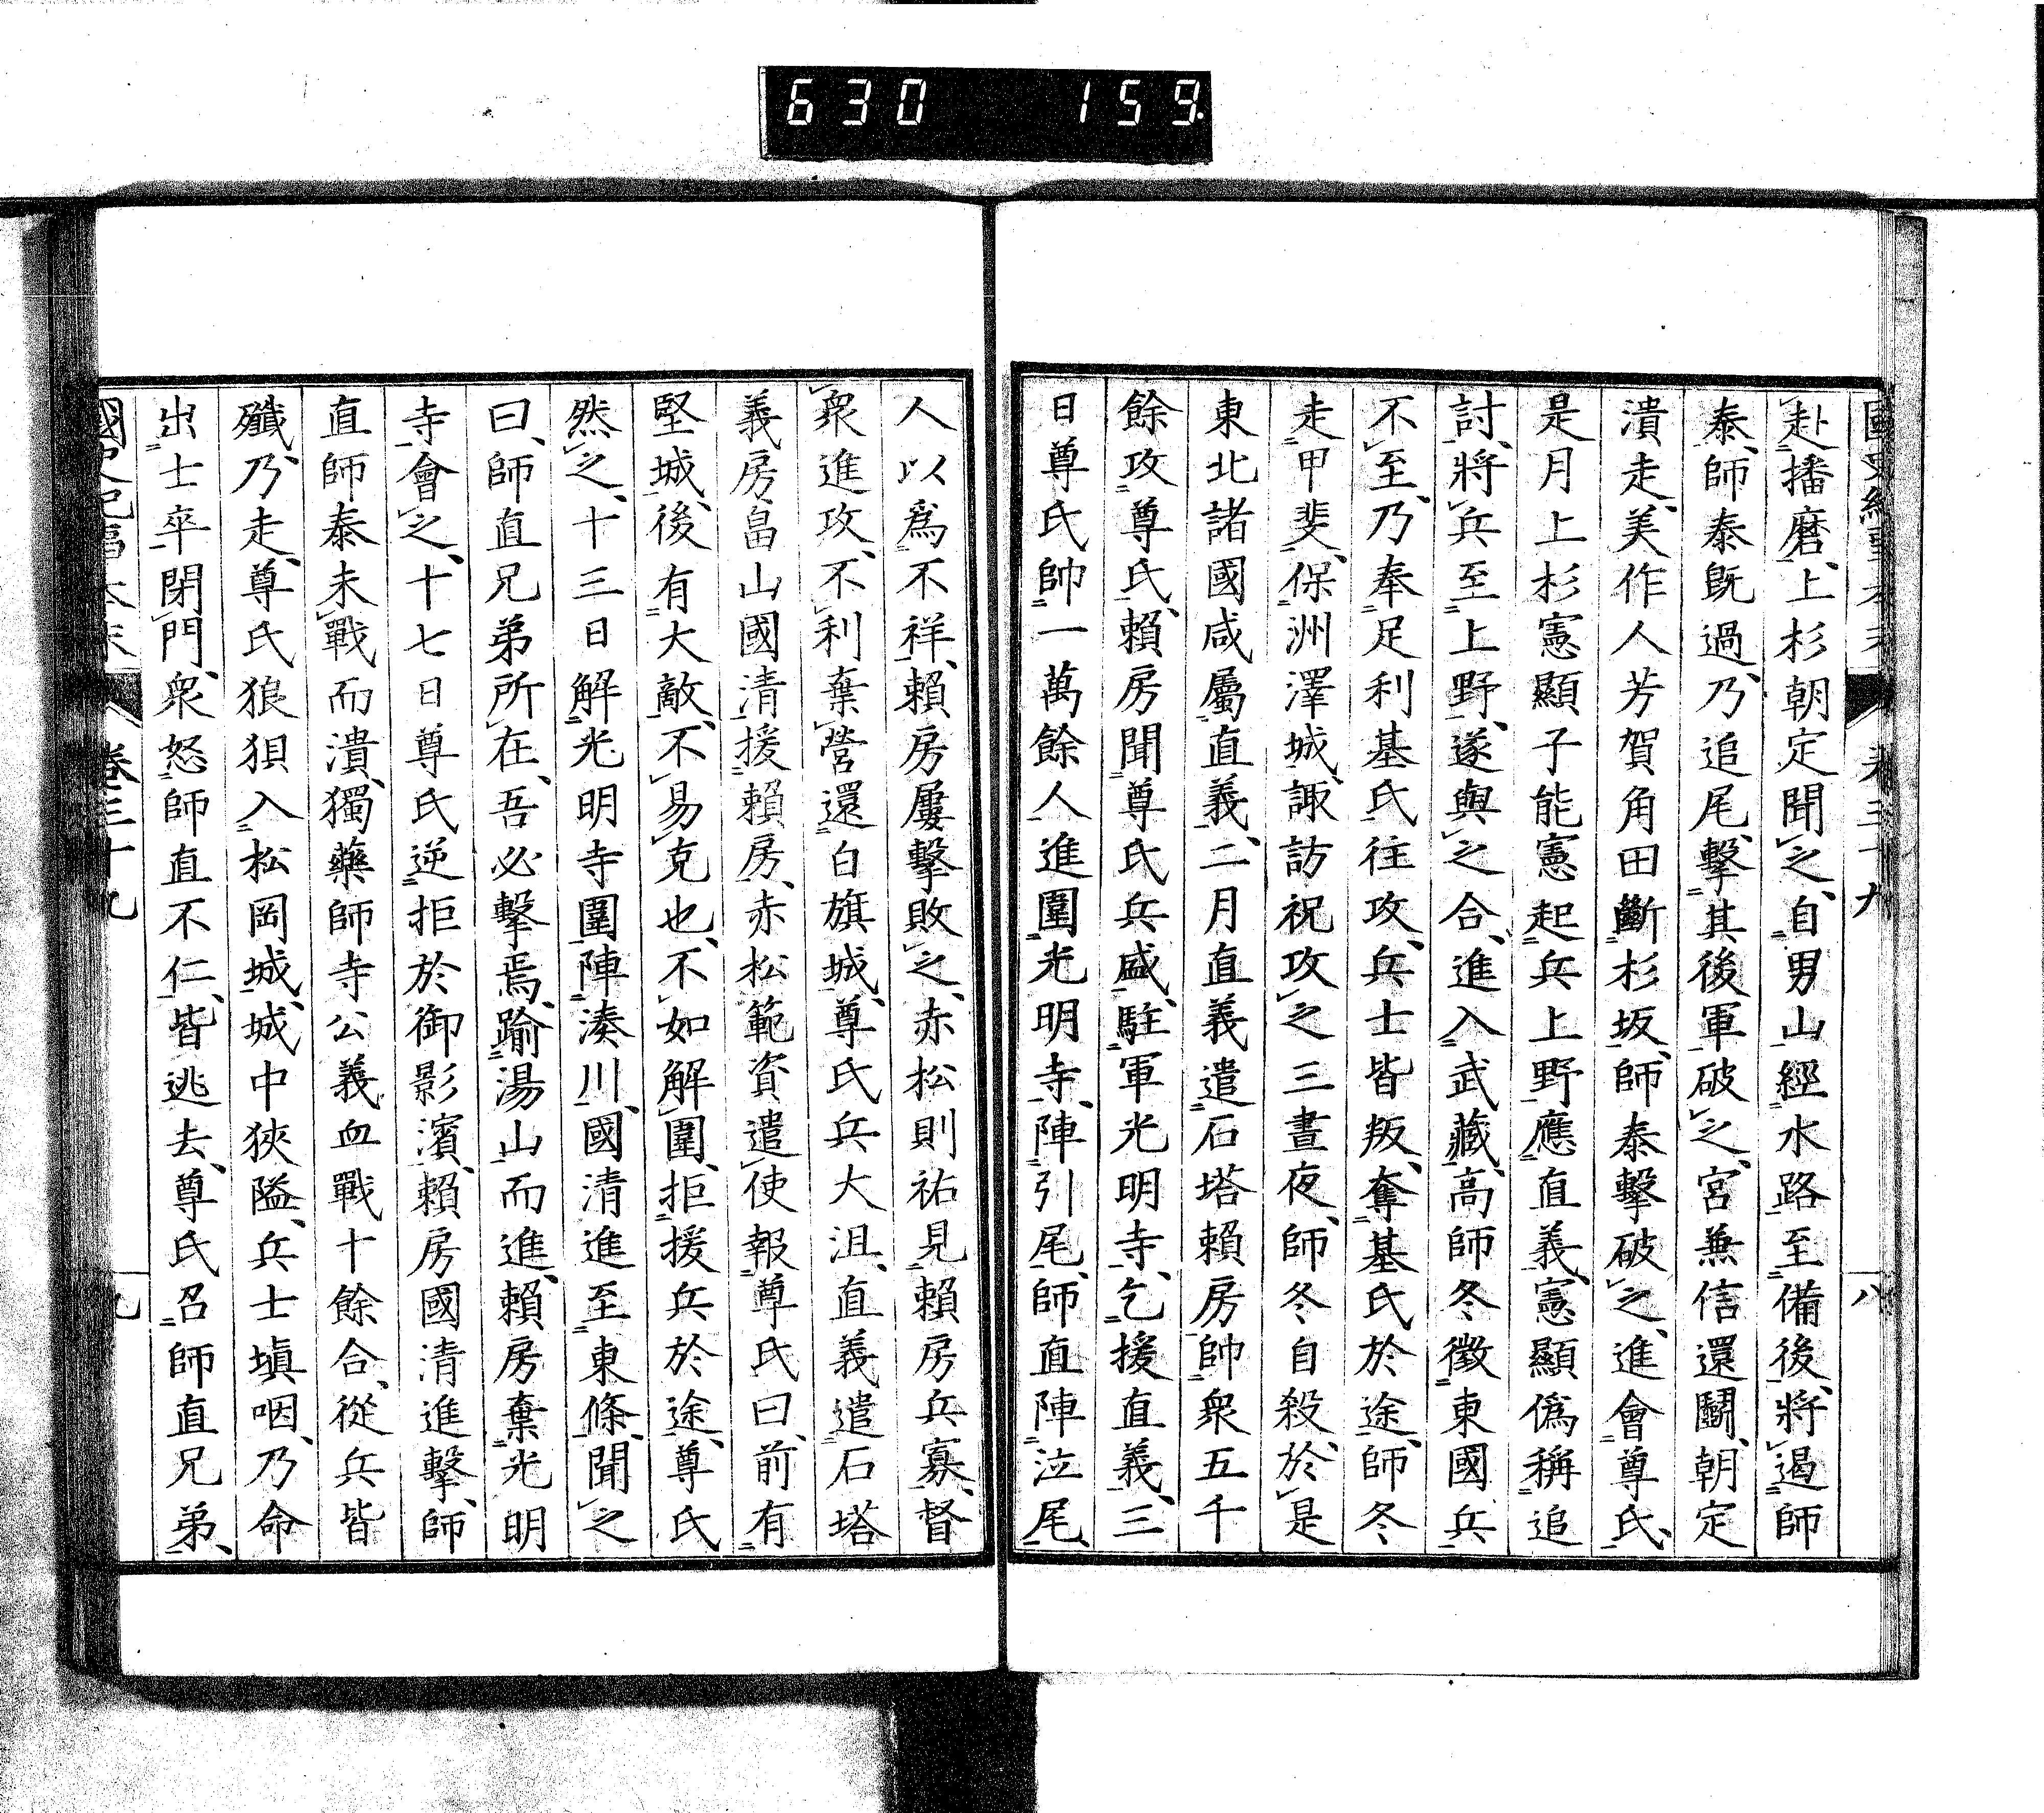 630 159
赴播磨、上杉朝定聞之、自男山經水路至備後、將遏師
泰、師泰既過、乃追尾、擊其後軍破之、宮兼信還鬬、朝定
潰走、美作人芳賀角田斷杉坂、師泰擊破之、進會尊氏、
是月上杉憲顯子能憲起兵上野應直義、憲顯僞稱追
討、將兵至上野、遂與之合、進入武藏、高師冬徵東國兵
不至、乃奉足利基氏往攻、兵士皆叛、奪基氏於途、師冬
走甲斐、保洲澤城、諏訪祝攻之三晝夜、師冬自殺、於是
東北諸國咸屬直義、二月直義遣石塔賴房帥眾五千
餘攻尊氏、賴房聞尊氏兵盛、駐軍光明寺、乞援直義、三
日尊氏帥一萬餘人進圍光明寺、陣引尾、師直陣泣尾、
人以爲不祥、賴房屢擊敗之、赤松則祐見賴房兵寡、督
眾進攻、不利棄營還白旗城、尊氏兵大沮、直義遣石塔
義房畠山國清援賴房、赤松範資遣使報尊氏曰、前有
堅城、後有大敵、不易克也、不如解圍、拒援兵於途、尊氏
然之、十三日解光明寺圍、陣湊川、國清進至東條、聞之
曰、師直兄弟所在、吾必擊焉、踰湯山而進、賴房棄光明
寺、會之、十七日尊氏逆拒於御影濱、賴房國清進擊、師
直師泰未戰而潰、獨藥師寺公義血戰十餘合、從兵皆
殲、乃走、尊氏狼狽入松岡城、城中狹隘、兵士塡咽、乃命
出士卒閉門、眾怒師直不仁、皆逃去、尊氏召師直兄弟、
國史紀事本末 卷三十九 九